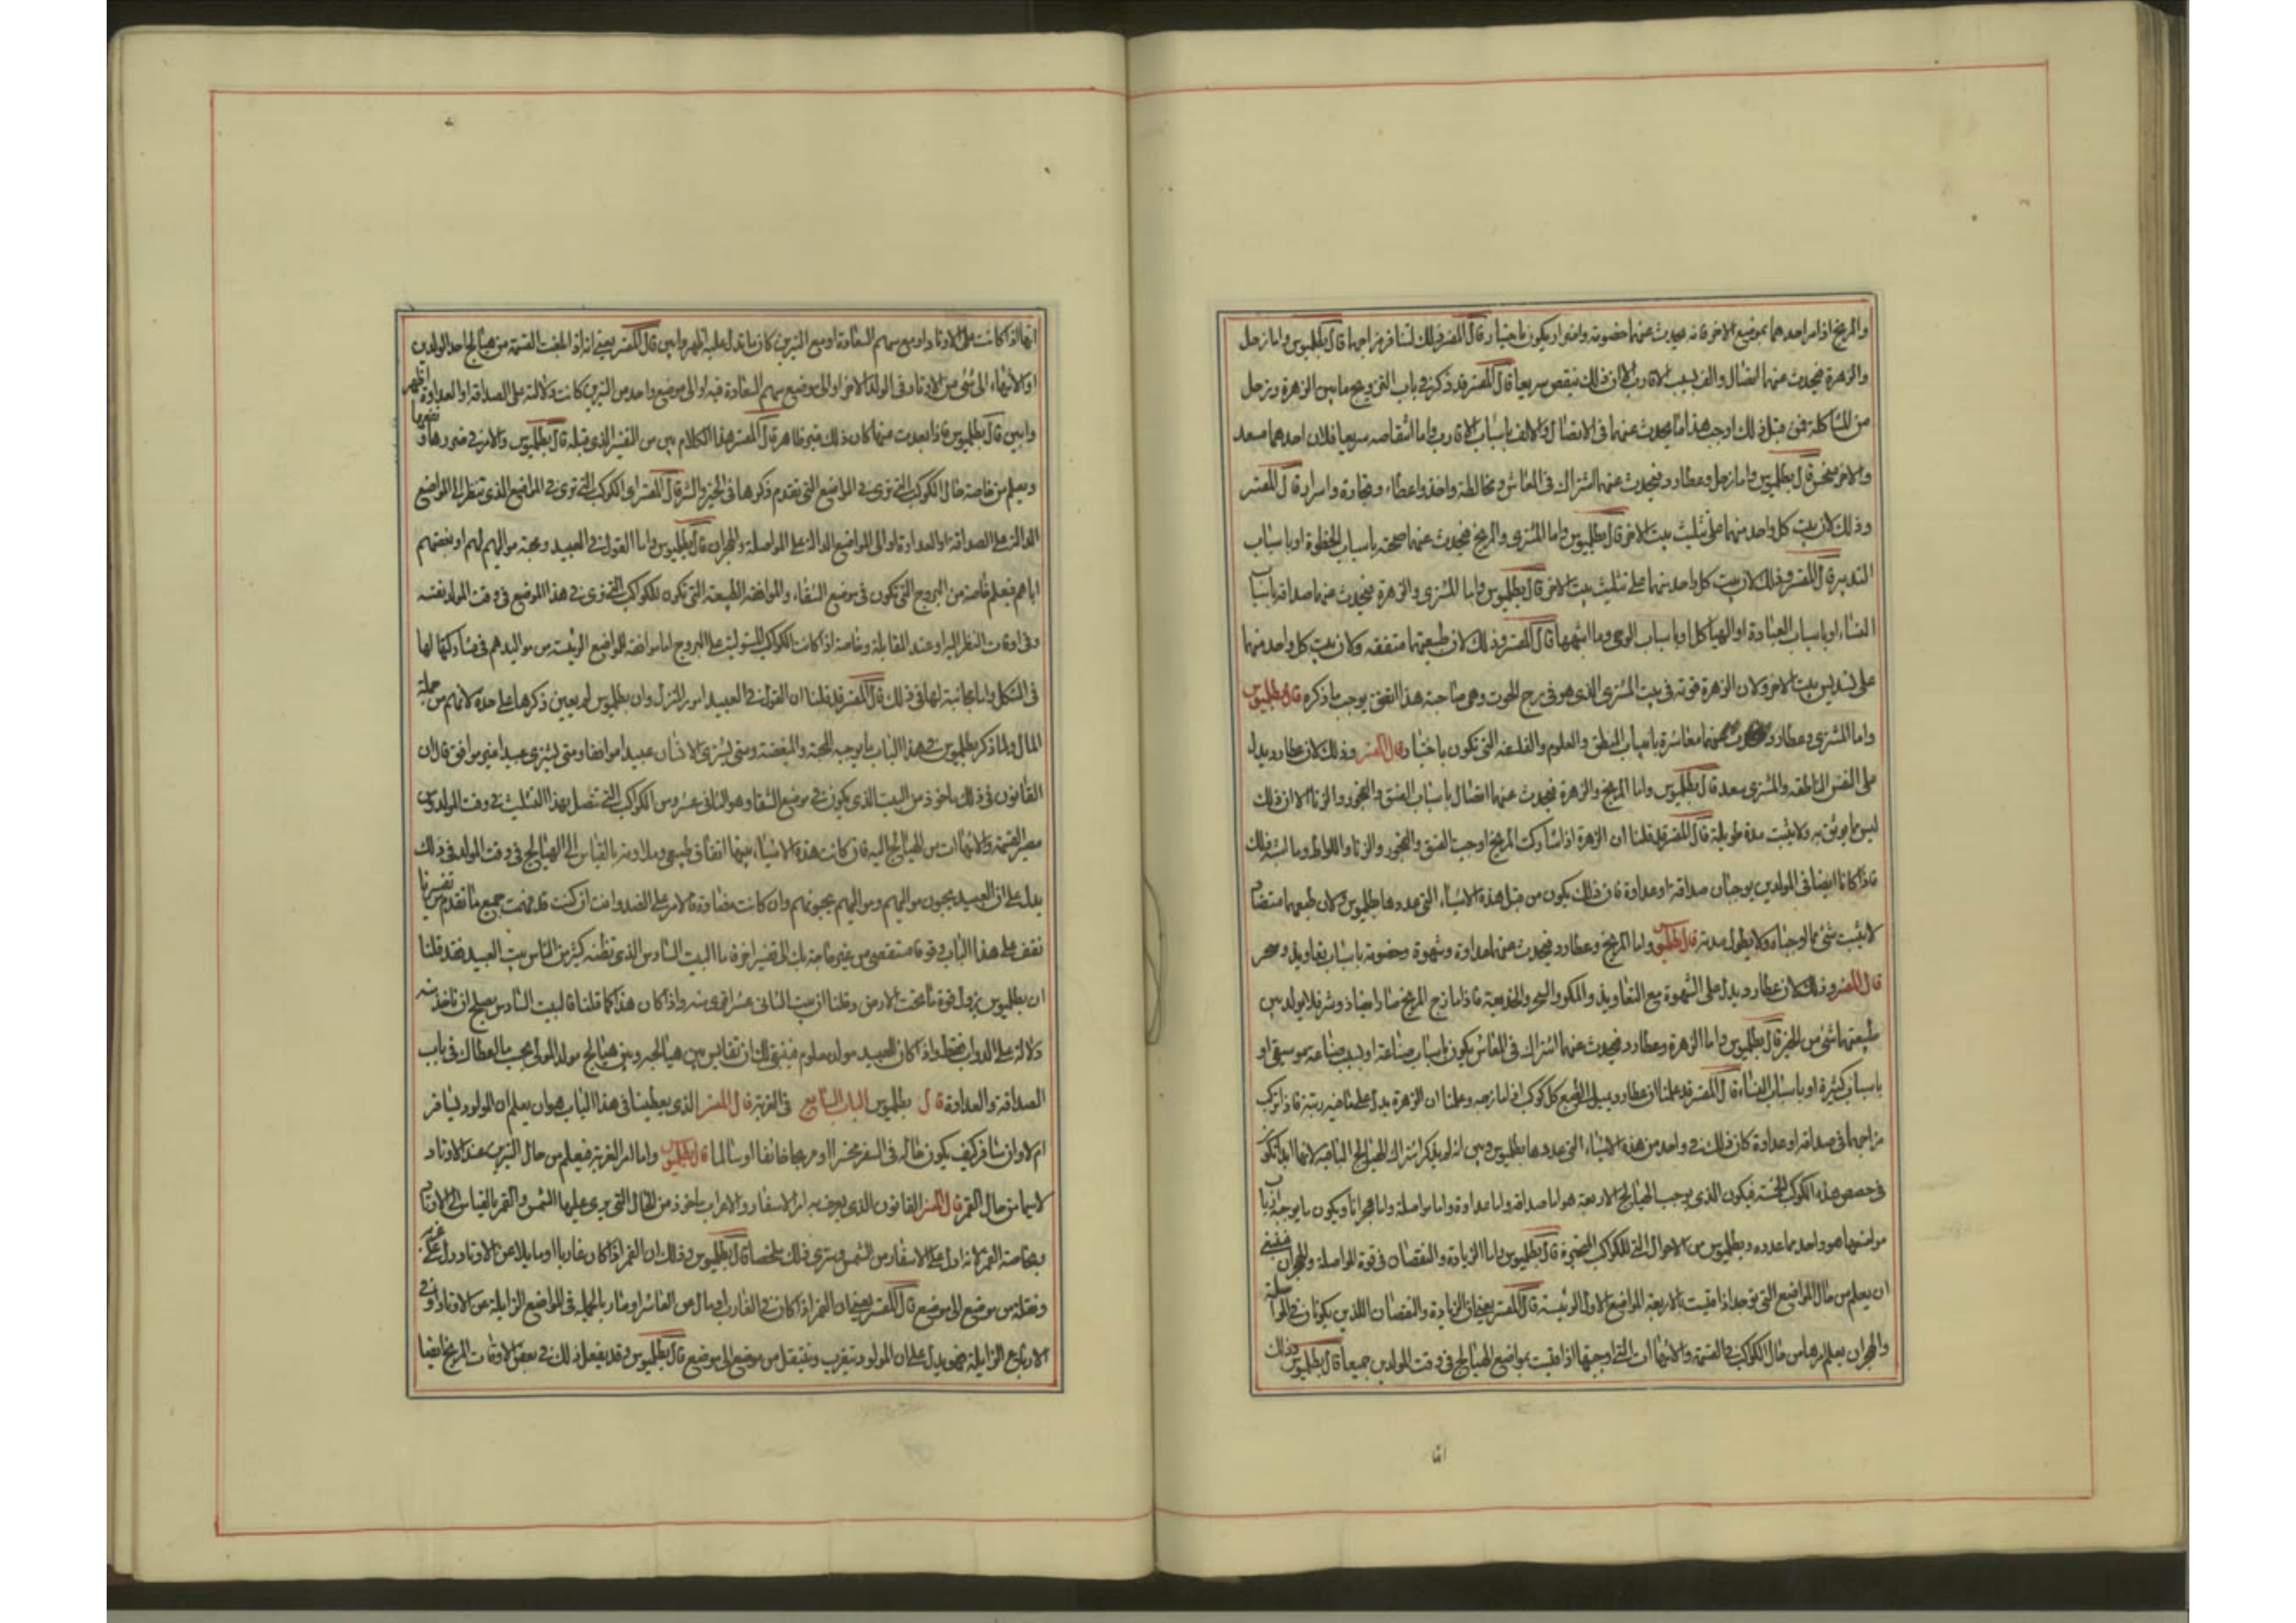 والمريخ اذا مر احدهما بموضع الاخر فانه يحدث عنهما خصومة واضرار يكون باختيار قال المفسر وذلك لتنافر مزاجهما قال بطلميوس واما زحل
والزهرة فيحدث عنهما اتصال والف بسبب الاقارب الا ان ذلك ينقص سريعا قال المفسر قد ذكر في باب التزويج ما بين الزهرة وزحل
من المشاكلة فمن قبل ذلك اوجب هذا ما يحدث عنهما في الاتصال والالف باسباب الاقارب واما انتقاصه سريعا فلان احدهما سعد
والاخر نحس قال بطلميوس واما زحل وعطارد فيحدث عنهما اشتراك في المعاش ومخالطة واخذ واعطاء وتجارة واسرار قال المفسر
وذلك لان بيت كل واحد منهما على تثليث بيت الاخر قال بطلميوس واما المشتري والمريخ فيحدث عنهما صحبة باسباب الحظوة او باسباب
التدبير قال المفسر وذلك لان بيت كل واحد منهما على تثليث بيت الاخر قال بطلميوس واما المشتري والزهرة فيحدث عنهما صداقة باسباب
النساء او باسباب العبادة او الهياكل او باسباب الوحي وما اشبهها قال المفسر وذلك لان طبيعتهما متفقة وكان بيت كل واحد منهما
على تسديس بيت الاخر ولان الزهرة قوته في بيت المشتري الذي هو في برج الحوت وهي صاحبة هذا اتفق يوجب ما ذكره قال بطلميوس
واما المشتري وعطارد عنهما معاشرة باسباب المنطق والعلوم والفلسفة التي تكون باختيار قال المفسر وذلك لان عطارد يدل
على النفس الناطقة والمشتري سعد قال بطلميوس واما المريخ والزهرة فيحدث عنهما اتصال باسباب الفسق والفجور والزنا الا ان ذلك
ليس مما يوثق به ولا يثبت مدة طويلة قال المفسر قد قلنا ان الزهرة اذا شاركت المريخ اوجبت الفسق والفجور والزنا واللواط وما اشبه ذلك
فاذا كانا ايضا في المولدين يوجبان صداقة او عداوة فان ذلك يكون من قبل هذه الاشياء التي عددها بطلميوس ولان طبعهما متضاد
لا يثبت شيء مما اوجباه ولا يطول مدته قال بطلميوس واما المريخ وعطارد فيحدث عنهما عداوة وشهوة وخصومة باسباب تعاويذ وسحر
قال المفسر وذلك لان عطارد يدل على الشهوة مع التعاويذ والمكر والسحر والخديعة فاذا مازج المريخ صارا مضاد وشر فلا يولد بين
طبيعتهما شيء من الخير قال بطلميوس واما الزهرة وعطارد فيحدث عنهما اشتراك في المعاش يكون باسباب صناعة او بسبب صناعة موسيقى او
باسباب كثيرة او باسباب النساء قال المفسر قد علمنا ان عطارد يميل الى طبع كل كوكب اذا مازجه وعلمنا ان الزهرة يدل على فاذا تركب
مزاجهما في صداقة او عداوة كان ذلك في واحد من هذه الاشياء التي عددها بطلميوس وبين انه لم يذكر اشتراك الهيالج الباقية لانها ابدا تكون
في حصص هذه الكواكب الخمسة فيكون الذي يوجب الهيالج الاربعة هو اما صداقة واما عداوة واما مواصلة واما هجرانا ويكون ما يوجبه ارباب
مواضعها هو واحد مما عدده وبطلميوس من الاحوال التي للكواكب المتحيرة قال بطلميوس واما الزيادة والنقصان في قوة المواصلة والهجران فينبغي
ان يعلم من حال المواضع التي توجد اذا قيست بالاربعة المواضع الاول الرئيسة قال المفسر يعني ان الزيادة والنقصان اللذين يكونان في المواصلة
والهجران يعلم امرهما من حال الكواكب والقسمة والانتهاات التي اوجبتها اذا قيست بمواضع الهيالج في وقت المولدين جميعا قال بطلميوس وذلك
اما
انها اذا كانت على الاوتاد او مع سهم السعادة او مع النيرين كان ما تدل عليه اظهر وابين قال المفسر يعني انه اذا بلغت القسمة من هيالج احد المولدين
او الانتهاء الى شيء من الاوتاد في المولد الاخر او الى موضع سهم السعادة فيه او الى موضع واحد من النيرين كانت دلالته على الصداقة او العداوة اظهر
وابين قال بطلميوس فاذا بعدت عنها كان ذلك غير ظاهرة قال المفسر هذا الكلام بين من التفسير الذي قبله قال بطلميوس والامر في ضررها ونفعها
ويعلم من خاصة حال الكواكب التي ترى في المواضع التي تقدم ذكرها في الخير والشر قال المفسر اي الكواكب التي ترى في المواضع الذي تنظر الى المواضع
الدالة على الصداقة او العداوة او الى المواضع الدالة على المواصلة والهجران قال بطلميوس واما القول في العبيد ومحبة مواليهم لهم او بغضتهم
اياهم فيعلم خاصة من البروج التي تكون في موضع الشقاء والموافقة الطبيعية التي تكون للكواكب التي ترى في هذا الموضع في وقت المولد نفسه
وفي اوقات النظر اليه او عند المقابلة وخاصة اذا كانت الكواكب المستولية على البروج اما موافقة للمواضع الرئيسة من مواليدهم في مشاركتها لها
في الشكل واما مجانبة لها في ذلك قال المفسر قد قلنا ان القول في العبيد امر المنزل وان بطلميوس لم يعين ذكرها على حدة لانهم من جملة
المال ولما ذكر بطلميوس في هذا الباب ما يوجبه المحبة والبغضة ومتى يشتري الانسان عبيدا موافقا ومتى يشتري عبيدا غير موافق قال ان
القانون في ذلك ماخوذ من البيت الذي يكون في موضع الشقا وهو الثاني عشر ومن الكواكب التي تتصل بهذا التثليث في وقت المولد ومن
مصير القسمة والانتهاات من الهيالج اليه فان كانت هذه الاشياء بينهما اتفاق طبيعي وملاومة بالقياس الى الهيالج في وقت المولد في ذلك
يدل على ان العبيد يحبون مواليهم ومواليهم يحبونهم وان كانت مضادة فالامر على الضد وانت ان كنت قد فهمت جميع ما تقدم من تفسيرنا
تقف على هذا الباب وقوفا مستقصى من غير حاجة بك الى تفسير اخر فاما البيت السادس الذي تظنه كثير من الناس بيت العبيد فقد قلنا
ان بطلميوس يزول قوة ما تحت الارض وقلنا ان بيت الثاني عشر اقوى منه واذا كان هذا كما قلنا فالبيت السادس يصلح ان تاخذ منه
دلالة على الدواب فقط واذا كان للعبيد مولد معلوم فينبغي لك ان تقايس بين هيالجه وبين هيالج مولد المولى بحسب ما اعطاك في باب
الصداقة والعداوة قال بطلميوس الباب السابع في الغربة قال المفسر الذي يعطينا في هذا الباب هو ان يعلم ان المولود يسافر
ام لا وان سافر كيف يكون حاله في السفر مخسرا او مربحا خائفا او سالما قال بطلميوس واما امر الغربة فيعلم من حال النيرين عند الاوتاد
لا سيما من حال القمر قال المفسر القانون الذي يعرف به امر الاسفار والاغتراب ماخوذ من الحال التي يرى عليها الشمس والقمر بالقياس الى الاوتاد
وبخاصة القمر فانه ادل على الاسفار من الشمس وستري ذلك ملخصا قال بطلميوس وذلك ان القمر اذا كان غاربا او مايلا عن الاوتاد دل على غربة
ونقلة من موضع الى موضع قال المفسر يعني ان القمر اذا كان في الغارب او مال من العاشر او صار بالجملة في المواضع الزايلة عن الاوتاد وفي
الارباع الزايلة فهو يدل على ان المولود يتغرب وينتقل من موضع الى موضع قال بطلميوس وقد يفعل ذلك في بعض الاوقات المريخ ايضا